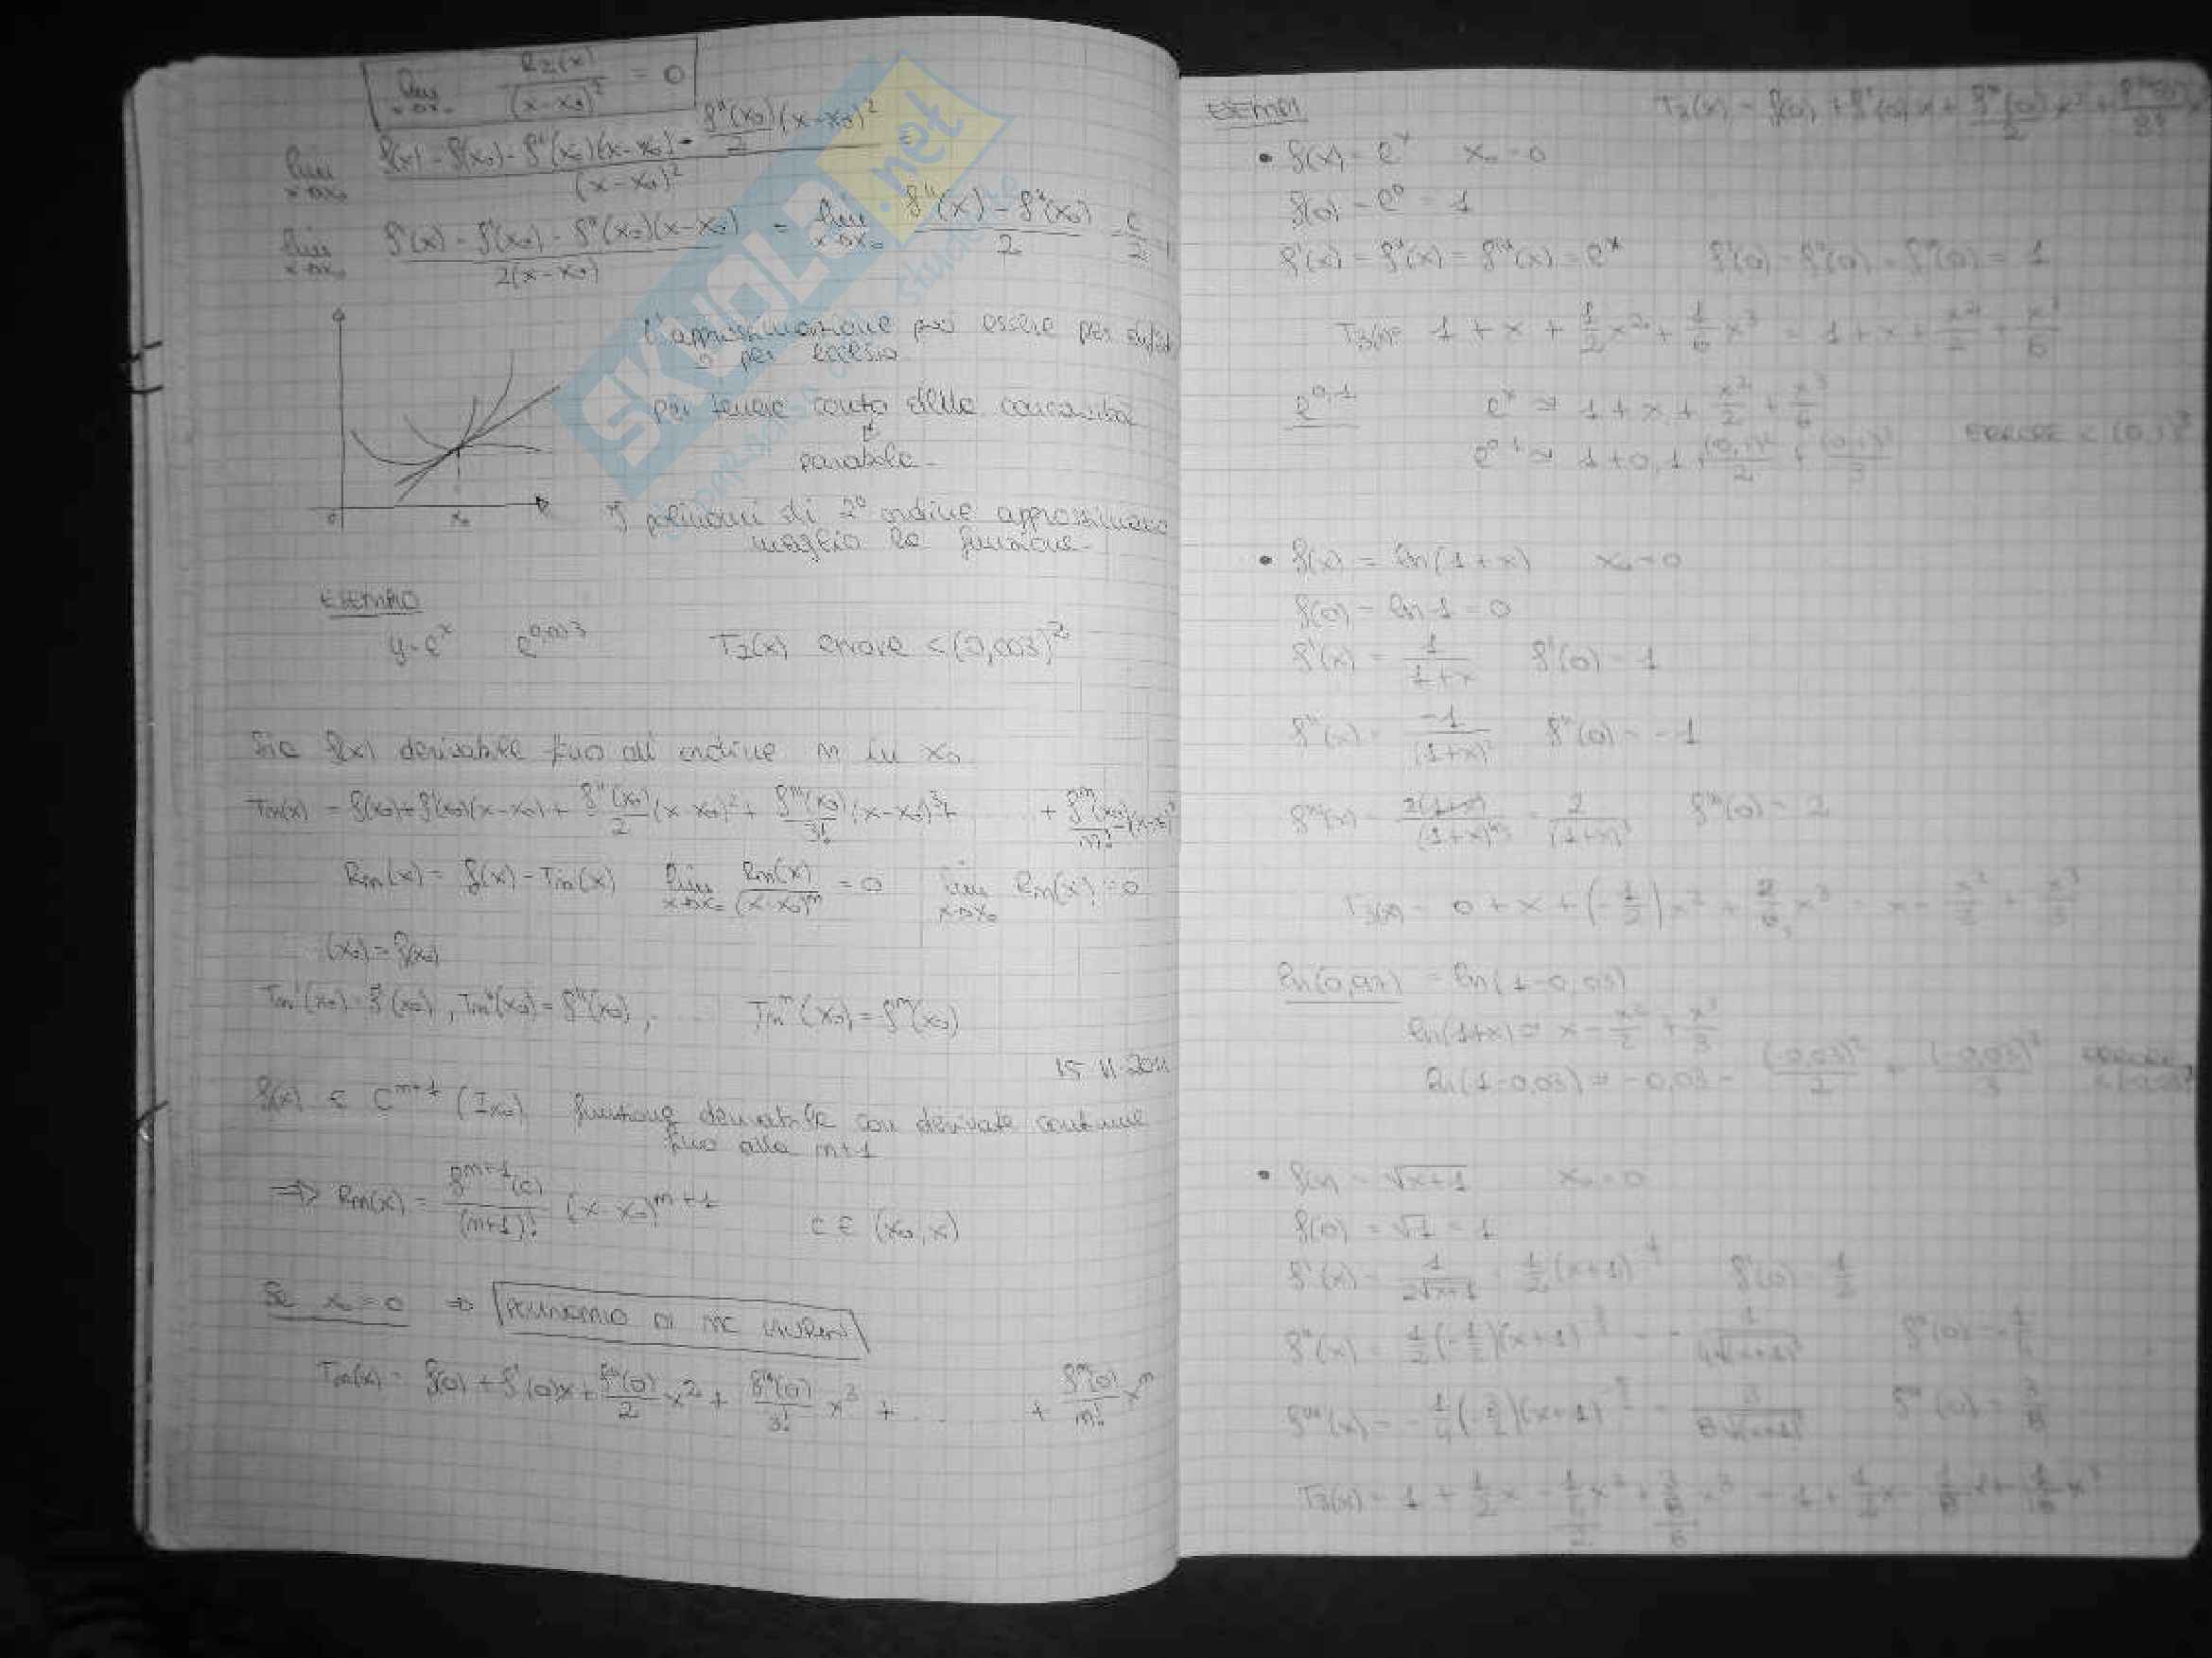 lim x→x₀ R₂(x)/(x-x₀)² = 0
lim x→x₀ [f(x) - f(x₀) - f'(x₀)(x-x₀) - f''(x₀)/2 (x-x₀)²]/(x-x₀)² =
lim x→x₀ [f'(x) - f'(x₀) - f''(x₀)(x-x₀)]/2(x-x₀) = lim x→x₀ [f''(x) - f''(x₀)]/2
L'approssimazione può essere per
o per eccesso
per tenere conto della concavità
↓
parabole
0 x₀
I polinomi di 2° ordine approssimano
meglio la funzione
ESEMPIO
y = eˣ e^0,003 T₂(x) errore < (0,003)²
Sia f(x) derivabile fino all ordine n in x₀
Tn(x) = f(x₀) + f'(x₀)(x-x₀) + f''(x₀)/2 (x-x₀)² + f'''(x₀)/3! (x-x₀)³ + ... + fⁿ(x₀)/n! (x-x₀)ⁿ
Rn(x) = f(x) - Tn(x) lim x→x₀ Rn(x)/(x-x₀)ⁿ = 0 lim x→x₀ Rn(x) = 0
(x₀) = f(x₀)
Tn'(x₀) = f'(x₀), Tn''(x₀) = f''(x₀), ... Tnⁿ(x₀) = fⁿ(x₀)
15-11-2011
f(x) ∈ Cⁿ⁺¹ (Ix₀) funzione derivabile con derivate continue
fino alla n+1
⇒ Rn(x) = fⁿ⁺¹(c)/(n+1)! (x-x₀)ⁿ⁺¹ c ∈ (x₀, x)
Se x₀ = 0 ⇒ POLINOMIO DI MC LAUREN
Tn(x) = f(0) + f'(0)x + f''(0)/2 x² + f'''(0)/3! x³ + ... + fⁿ(0)/n! xⁿ
ESEMPI
T₃(x) = f(0) + f'(0)x + f''(0)/2 x² + f'''(0)/3! x³
• f(x) = eˣ x₀ = 0
f(0) = e⁰ = 1
f'(x) = f''(x) = f'''(x) = eˣ f'(0) = f''(0) = f'''(0) = 1
T₃(x) = 1 + x + 1/2 x² + 1/6 x³ = 1 + x + x²/2 + x³/6
e^0,1 eˣ ≃ 1 + x + x²/2 + x³/6
e^0,1 ≃ 1 + 0,1 + (0,1)²/2 + (0,1)³/3 ERRORE < (0,1)³
• f(x) = ln(1+x) x₀ = 0
f(0) = ln 1 = 0
f'(x) = 1/(1+x) f'(0) = 1
f''(x) = -1/(1+x)² f''(0) = -1
f'''(x) = 2(1+x)/(1+x)⁴ = 2/(1+x)³ f'''(0) = 2
T₃(x) = 0 + x + (-1/2)x² + 2/6 x³ = x - x²/2 + x³/3
ln(0,97) = ln(1-0,03)
ln(1+x) ≃ x - x²/2 + x³/3
ln(1-0,03) ≃ -0,03 - (-0,03)²/2 + (-0,03)³/3 ERRORE
• f(x) = √x+1 x₀ = 0
f(0) = √1 = 1
f'(x) = 1/2√x+1 = 1/2 (x+1) f'(0) = 1/2
f''(x) = 1/2 (-1/2)(x+1) = - 1/4√(x+1)³ f''(0) = -1/4
f'''(x) = -1/4 (-3/2)(x+1) = 3/8√(x+1) f'''(0) = 3/8
T₃(x) = 1 + 1/2 x - 1/4/2 x² + 3/8/6 x³ = 1 + 1/2 x - 1/8 x² + 1/16 x³
SKUOLA.net